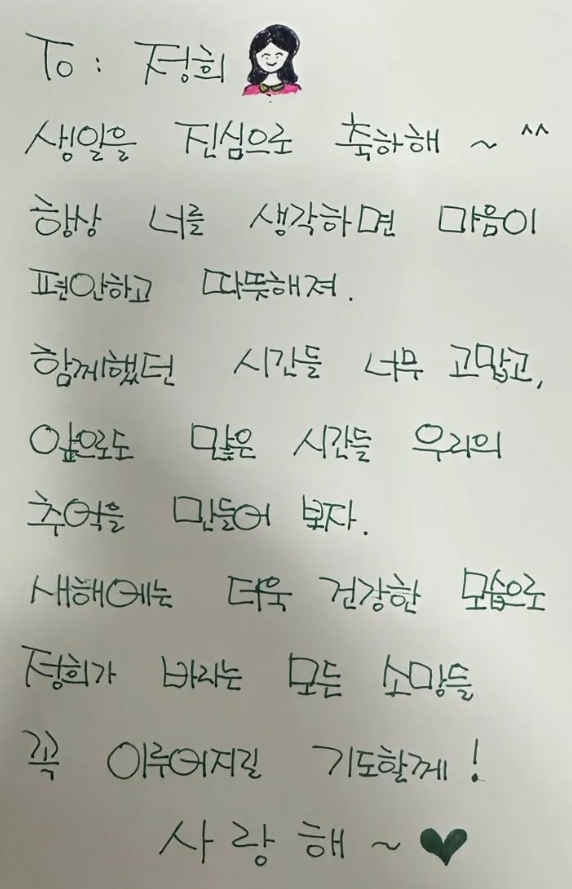 To : 정희
생일을 진심으로 축하해 ~ ^^
항상 너를 생각하면 마음이
편안하고 따뜻해져.
함께했던 시간들 너무 고맙고,
앞으로도 많은 시간들 우리의
추억을 만들어 보자.
새해에는 더욱 건강한 모습으로
정희가 바라는 모든 소망들
꼭 이루어지길 기도할께!
사랑해 ~ ♥